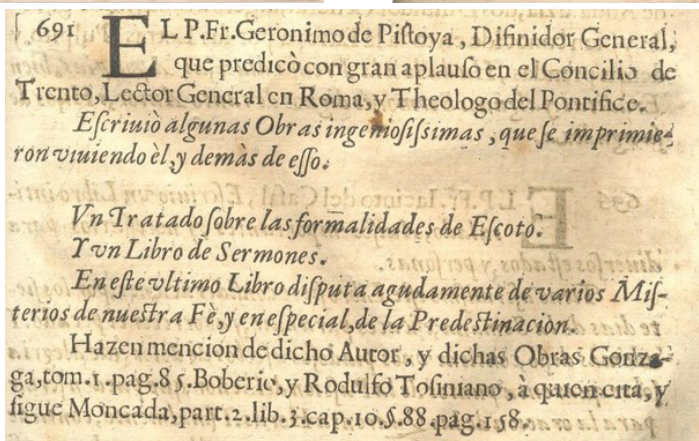 691 EL P.Fr.Geronimo de Pistoya, Difinidor General,
que predicò con gran aplauſo en el Concilio de
Trento, Lector General en Roma, y Theologo del Pontifice.
Eſcriuiò algunas Obras ingenioſiſsimas, que ſe imprimie-
ron viuiendo èl, y demàs de eſſo.
Vn Tratado ſobre las formalidades de Eſcoto.
Y vn Libro de Sermones.
En eſte vltimo Libro diſputa agudamente de varios Miſ-
terios de nueſtra Fè, y en eſpecial, de la Predeſtinacion.
Hazen mencion de dicho Autor, y dichas Obras Gonza-
ga, tom. 1. pag. 85. Boberio, y Rodulfo Toſiniano, à quien cita, y
ſigue Moncada, part. 2. lib. 3. cap. 10. §. 88. pag. 158.